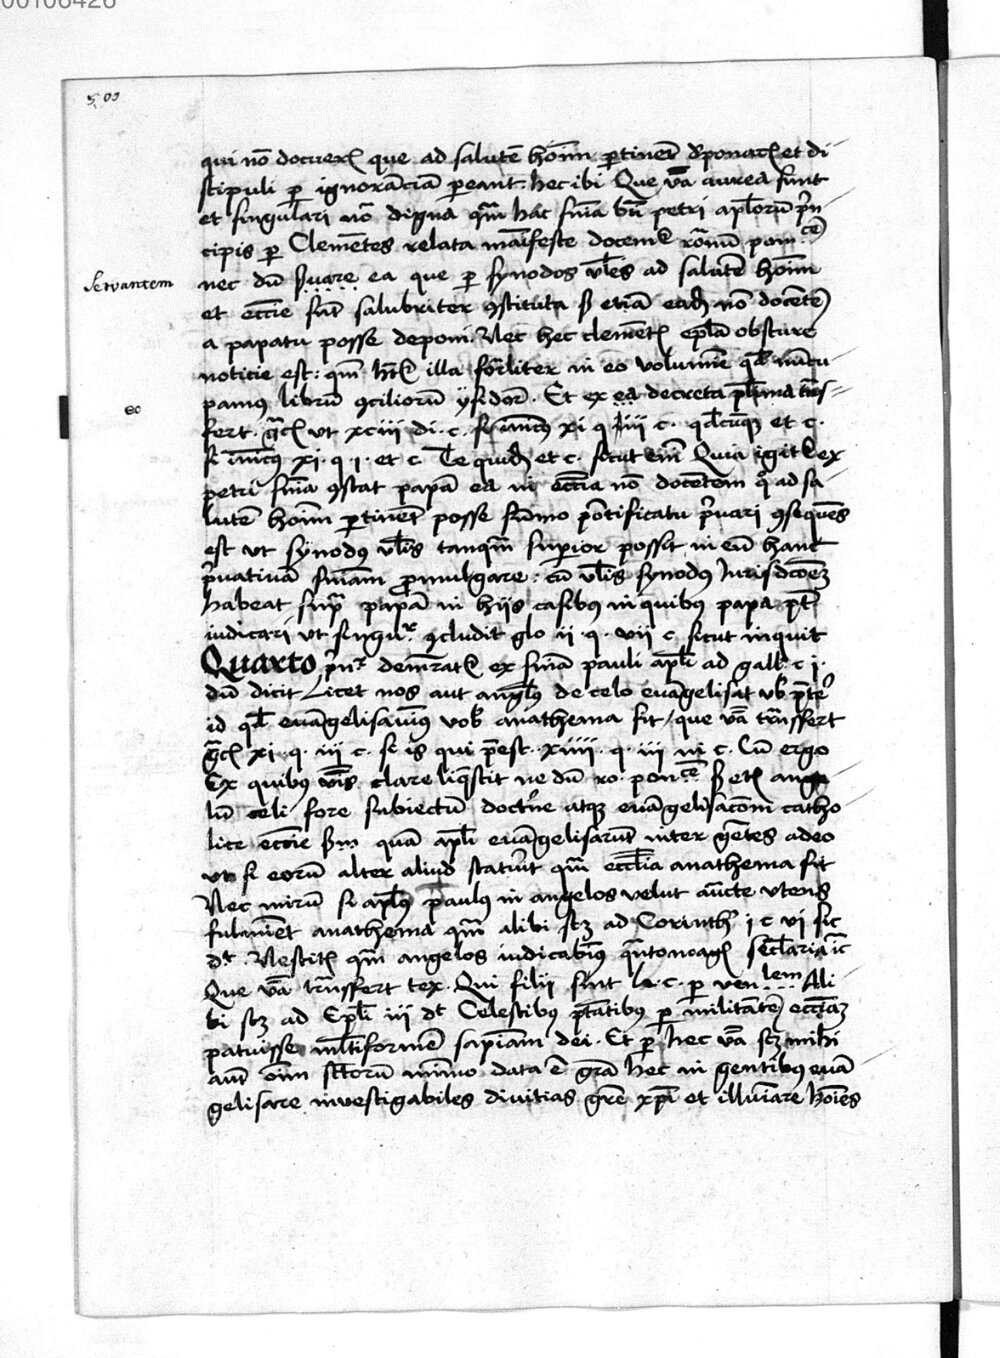 00106426
503
qui nō docuerit que ad salutē hoīm pertinent et di
scipuli per ignorāciā pereant. hec ibi Que vā aurea sunt
et singulari nō digna qm̄ hac snīa btī petri aplorū prin
cipis per Clemētes relata manifeste docemr romū pontcē
servantem nec dū suare ea que per synodos vles ad salutē hoīm
et eccie sunt salubriter gstituta s etiā eadē nō docētē
a papatu posse deponi. Nec hec clemēt epla obscure
noticie est: qm hr illa formliter in eo volumīe qd nuncu
eo pamus librū gciliorū ysidor. Et ex ea decreta plīma tns
fert. grc ut xciii di. c. si inimicus xi q iii c. qdcūqz et c.
si inimicus xi. q. i. et c. Te quidē et c. sicut enī Quia igitr ex
petri snīa gstat papā ea in eccīa nō docentem q ad sa
lutē hoīm pertinent posse summo pontificatu privari gsequēs
est ut synodus vlis tanqm superior possit in eū hanc
privativā snīam promulgare: cū vlis synodus Jurisdcoēz
habeat supra papā in hiis casibus in quibus papa pt
iudicari ut singur gcludit glo ii. q. vii c. sicut inquit
Quarto prinr demratr ex snīa pauli apli ad gall c i.
dū dicit Licet nos aut anglus de celo euāgelisat vb preter
id qd euāgelisauimus vob anathema sit / que vā trānsfert
grc xi. q. iii c. si is qui preest. xiiii. q. iii c. Cū ergo
Ex quibus vbis clare liqscit ne dū ro. poncē s et ange
lū celi fore subiectū doctrine atqz euāgelisacōni catho
lice eccie sm quā apli euāgelisarunt inter gētes adeo
ut si eorū alter aliud statuerit qm ecclīa anathema sit
Nec mirū si aplus paulus in angelos velut aucte utens
fulminet anathema qm alibi scz ad Corinth i c vi sic
dt. Nescitis qm angelos iudicabius qntomagis seclaria ic
Que vā trānsfert tex. Qui filii sint le. c. per venlem Ali
bi scz ad Ephi iii dt Celestibus ptātibus per militātē ecclīaz
patuisse mltiformē sapīam dei. Et per hec vā scz mihi
aut oīm sctorū minimo data ē grā hec in gentibus euā
gelisare investigabiles divitias grē xpi et illuminare hoīes